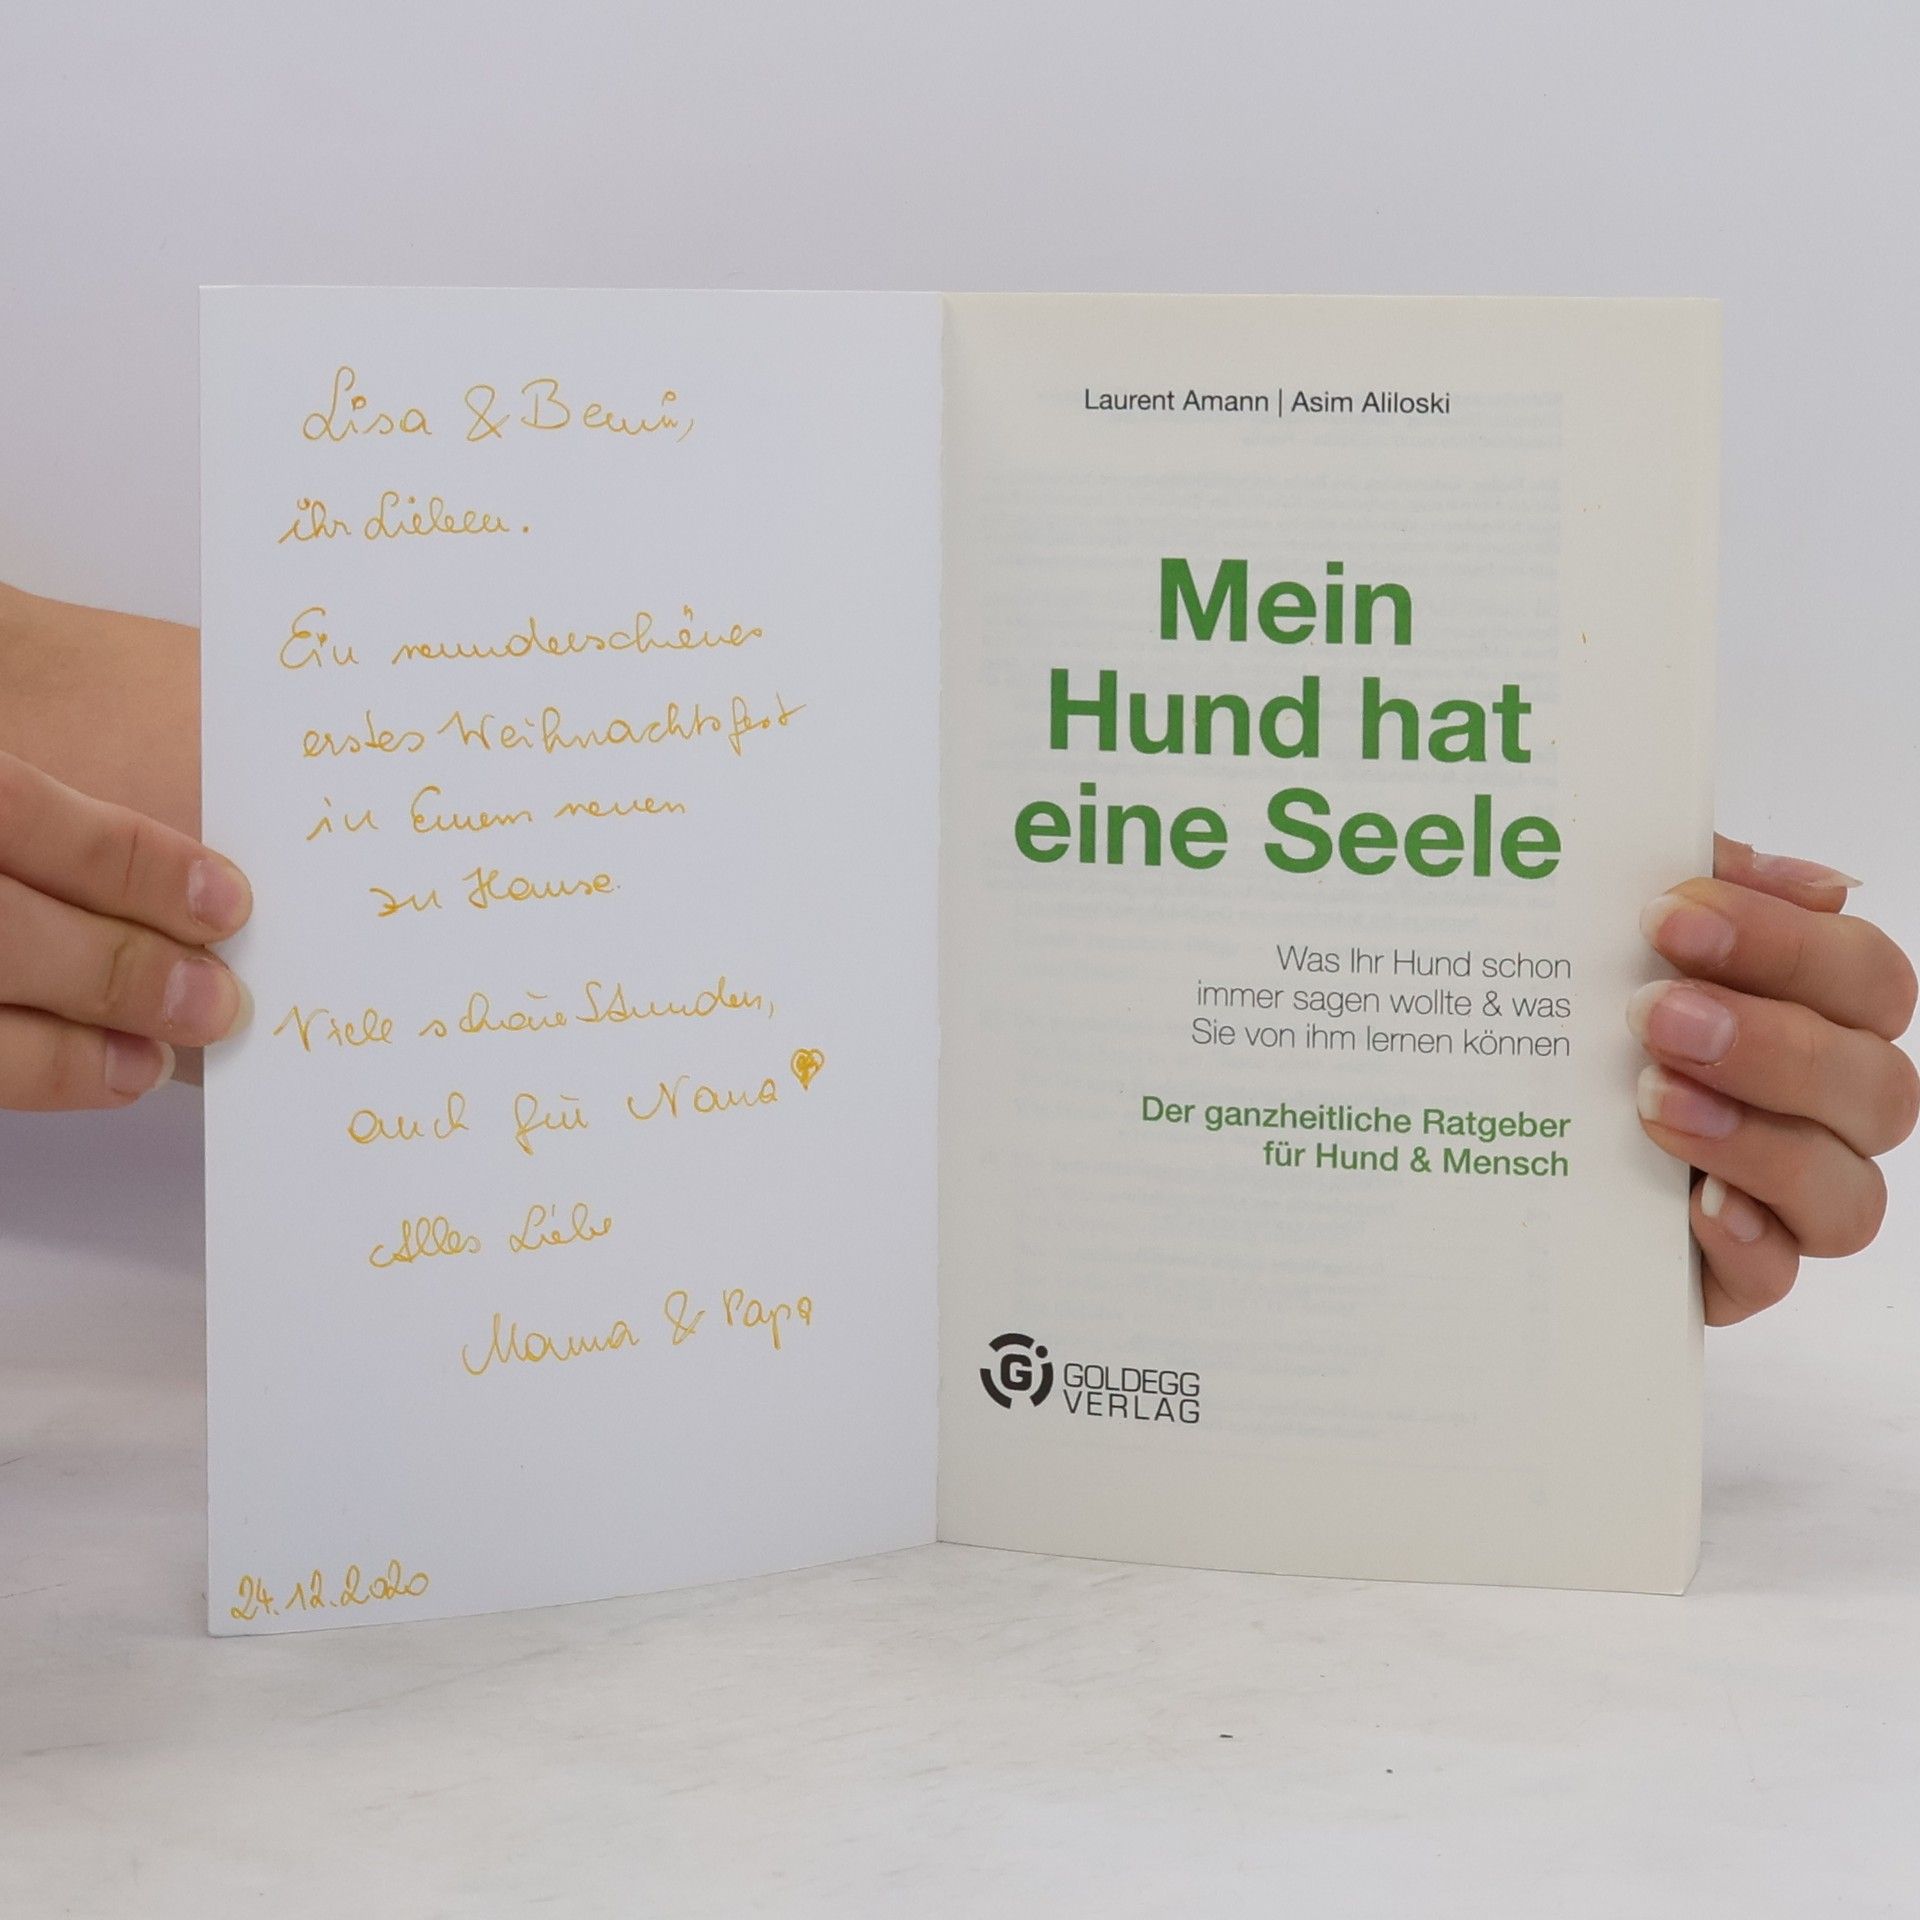 Lisa & Benni,
ihr Lieben.
Ein wunderschönes
erstes Weihnachtsfest
in Eurem neuen
zu Hause.
Viele schöne Stunden,
auch für Nana
Alles Liebe
Mama & Papa
24.12.2020
Laurent Amann | Asim Aliloski
Mein
Hund hat
eine Seele
Was Ihr Hund schon
immer sagen wollte & was
Sie von ihm lernen können
Der ganzheitliche Ratgeber
für Hund & Mensch
G
GOLDEGG
VERLAG